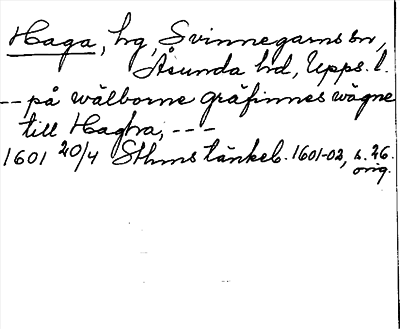 Haga, hg, Svinnegarns sn,
Åsunda hd, Upps. l.
-- på wälborne gräfinnes wägne
till Hagha, ---
1601 20/4 Sthms tänkeb. 1601-02, s. 26.
orig.